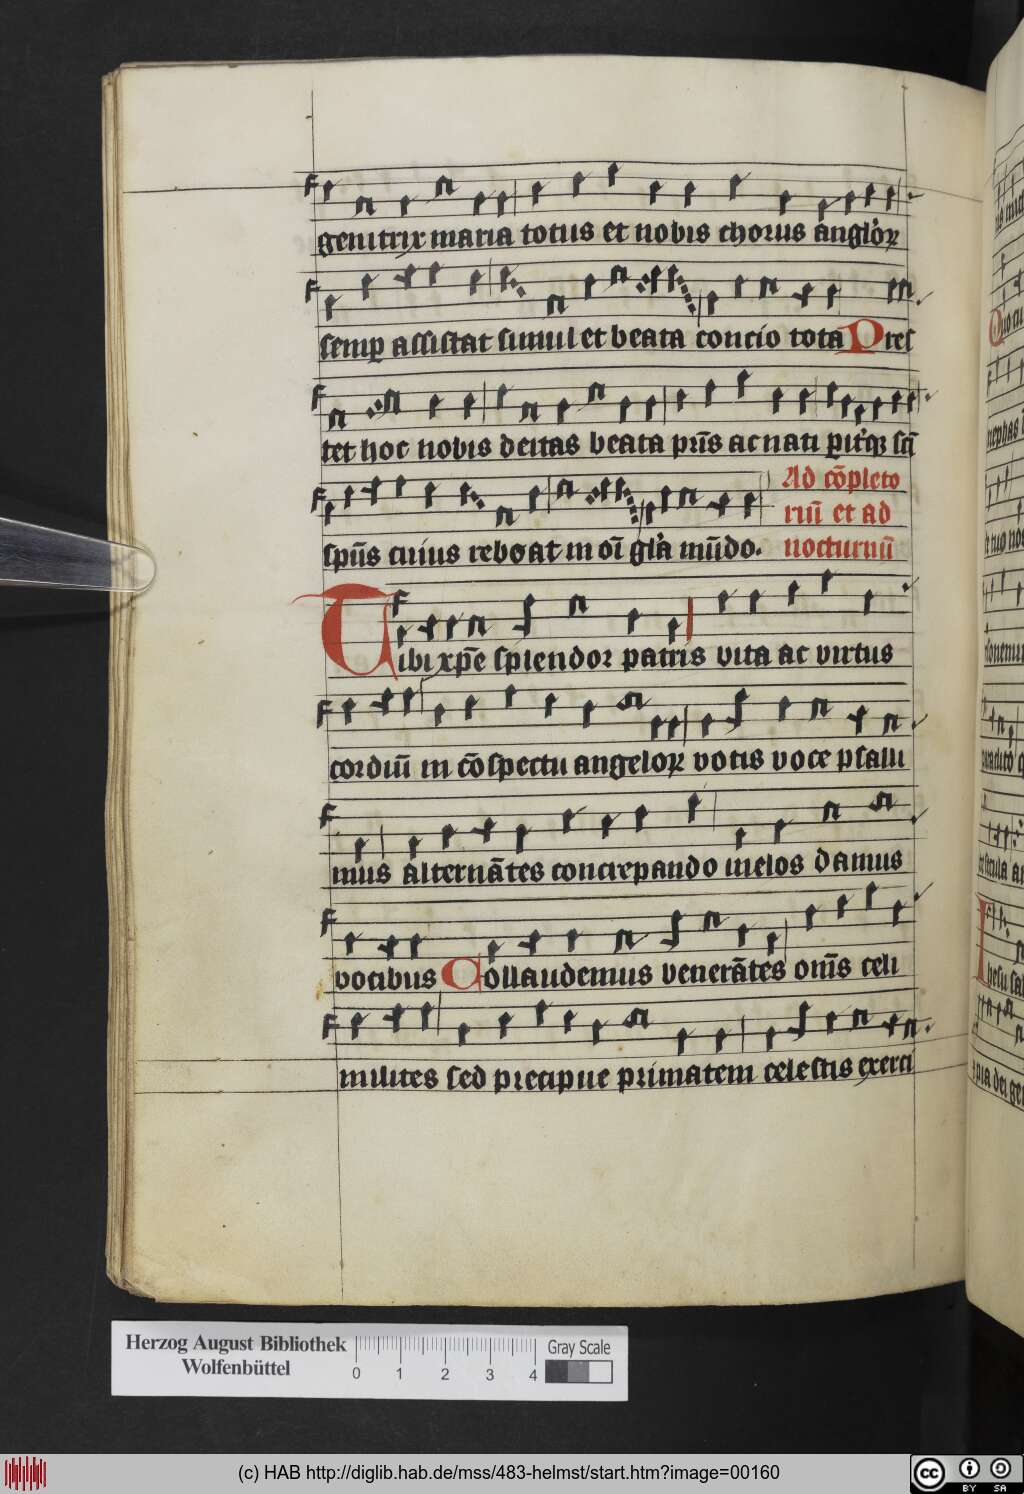 genitrix maria totus et nobis chorus anglor̛ꝝ
semꝑ assistat simul et beata concio tota Pres
tet hoc nobis deitas beata pr̄is ac nati ꝑit̛qꝫ sc̄i
sp̄us cuius reboat in oī gl̛a mūdo. Ad cōpleto
riū et ad
nocturnū
Tibi xp̄e splendor patris vita ac virtus
cordiū in cōspectu angeloꝝ votis voce psalli
mus alternātes concrepando melos damus
vocibus Collaudemus venerātes om̄s celi
milites sed precipue primatem celestis exerci
Herzog August Bibliothek
Wolfenbüttel
0 1 2 3 4
Gray Scale
(c) HAB http://diglib.hab.de/mss/483-helmst/start.htm?image=00160
cc BY SA